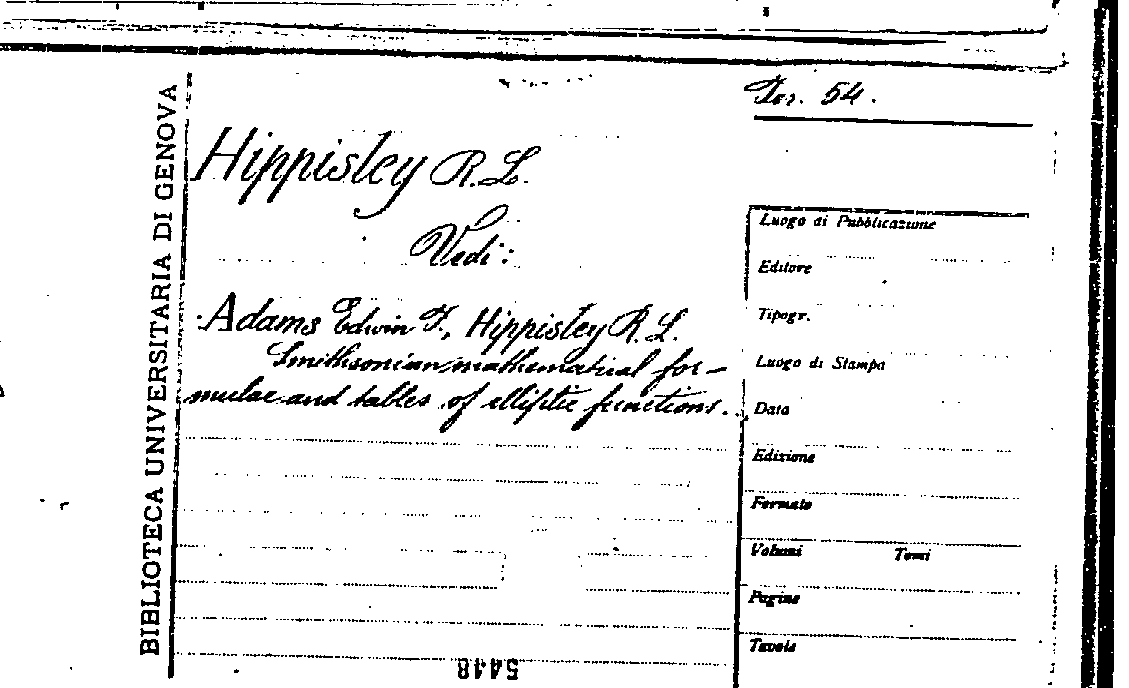 BIBLIOTECA UNIVERSITARIA DI GENOVA
Ser. 54.
Hippisley R. L.
Vedi:
Adams Edwin F., Hippisley R. L.
Smithsonian mathematical for-
mulae and tables of elliptic functions.
Luogo di Pubblicazione
Editore
Tipogr.
Luogo di Stampa
Data
Edizione
Formato
Volumi Tomi
Pagine
Tavole
5448